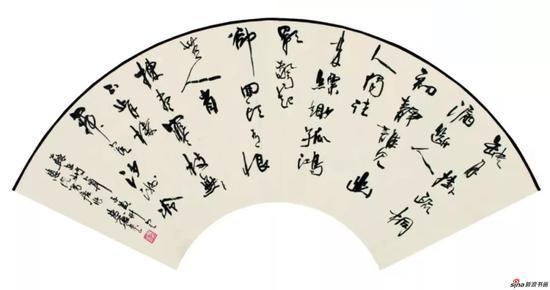 缺月挂疏桐
漏断人
初静谁见幽
人独往
来缥缈孤鸿
影惊起
却回头有恨
无人省
拣尽寒枝不
肯栖
寂寞沙洲冷
sina新浪书画